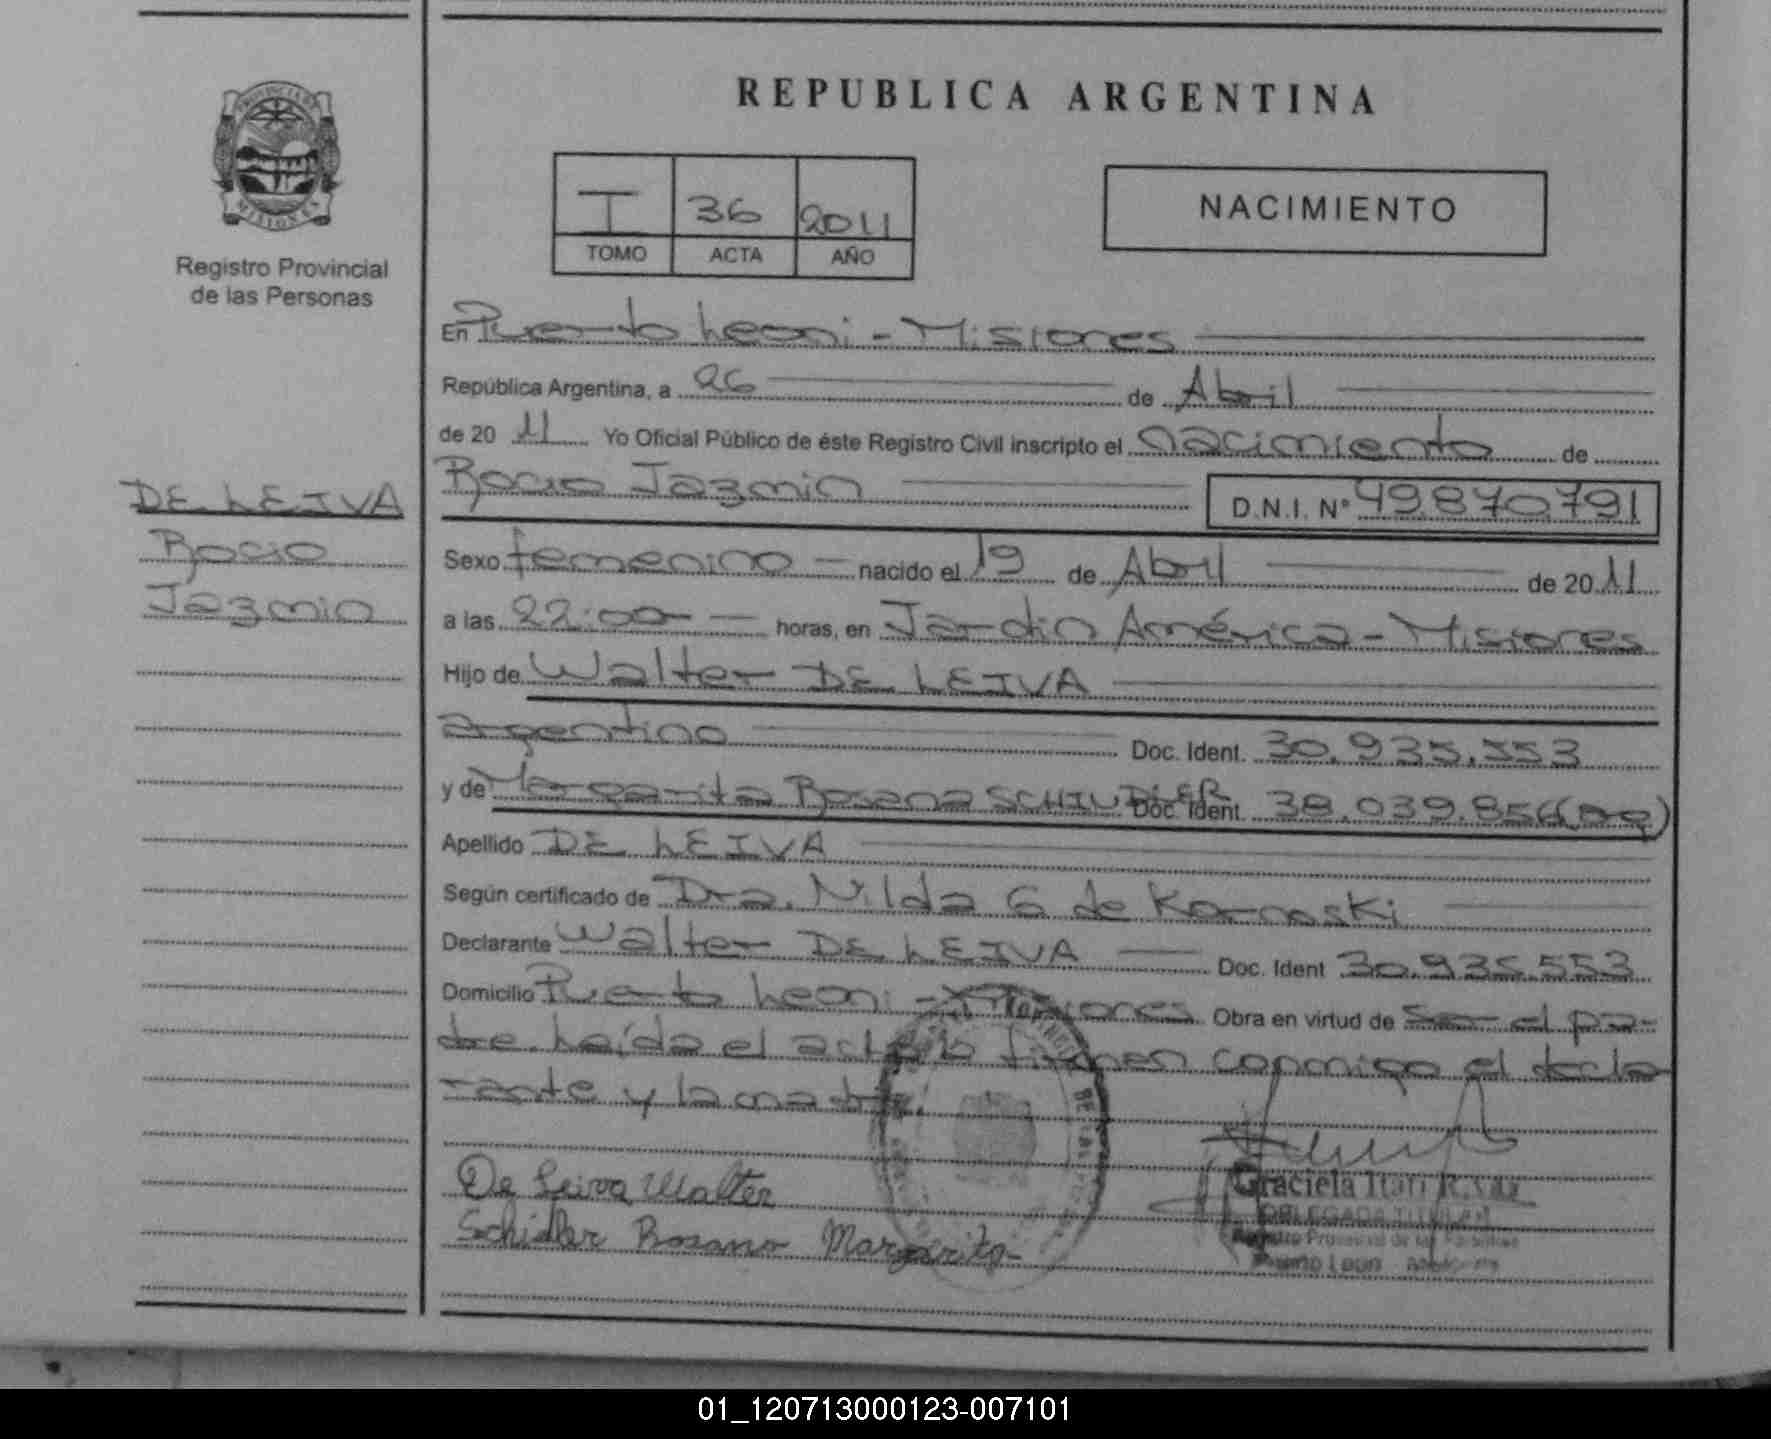 REPUBLICA ARGENTINA
PROVINCIA DE
MISIONES
Registro Provincial
de las Personas
I 36 2011
TOMO ACTA AÑO
NACIMIENTO
En Puerto Leoni - Misiones
República Argentina, a 26 de Abril
de 20 11 Yo Oficial Público de éste Registro Civil inscripto el nacimiento de
Rocio Jazmin D.N.I. Nº 49.870.791
DE LEIVA
Rocio
Jazmin
Sexo femenino nacido el 19 de Abril de 20 11
a las 22:00 horas, en Jardin América - Misiones
Hijo de Walter DE LEIVA
argentino Doc. Ident. 30.935.553
y de Margarita Rosana SCHINDLER Doc. Ident. 38.039.856 (Arg)
Apellido DE LEIVA
Según certificado de Dra. Nilda G de Kornoski
Declarante Walter DE LEIVA Doc. Ident 30.935.553
Domicilio Puerto Leoni - Misiones Obra en virtud de ser el pa-
dre. Leída el acta la firman conmigo el decla
rante y la madre.
De Leiva Walter
Schidler Rosana Margarita
Graciela Itati
DELEGADA TITULAR
Registro Provincial de las Personas
Puerto Leoni Misiones
01_120713000123-007101